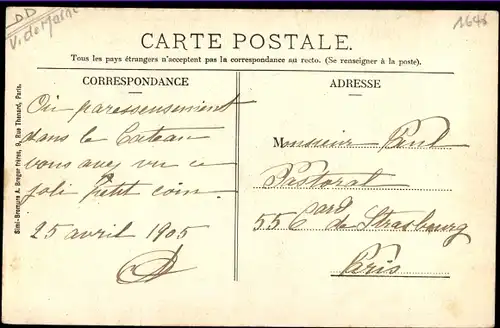 DD
V. de Marne
1648
CARTE POSTALE.
Tous les pays étrangers n'acceptent pas la correspondance au recto. (Se renseigner à la poste).
CORRESPONDANCE
Où paresseusement
dans le bateau
vous avez vu ce
joli petit coin.
25 avril 1905
ADRESSE
Monsieur Paul
Pastorat
55 Bard de Strasbourg
Paris
Simi-Bromure A. Breger frères, 9, Rue Thenard, Paris.